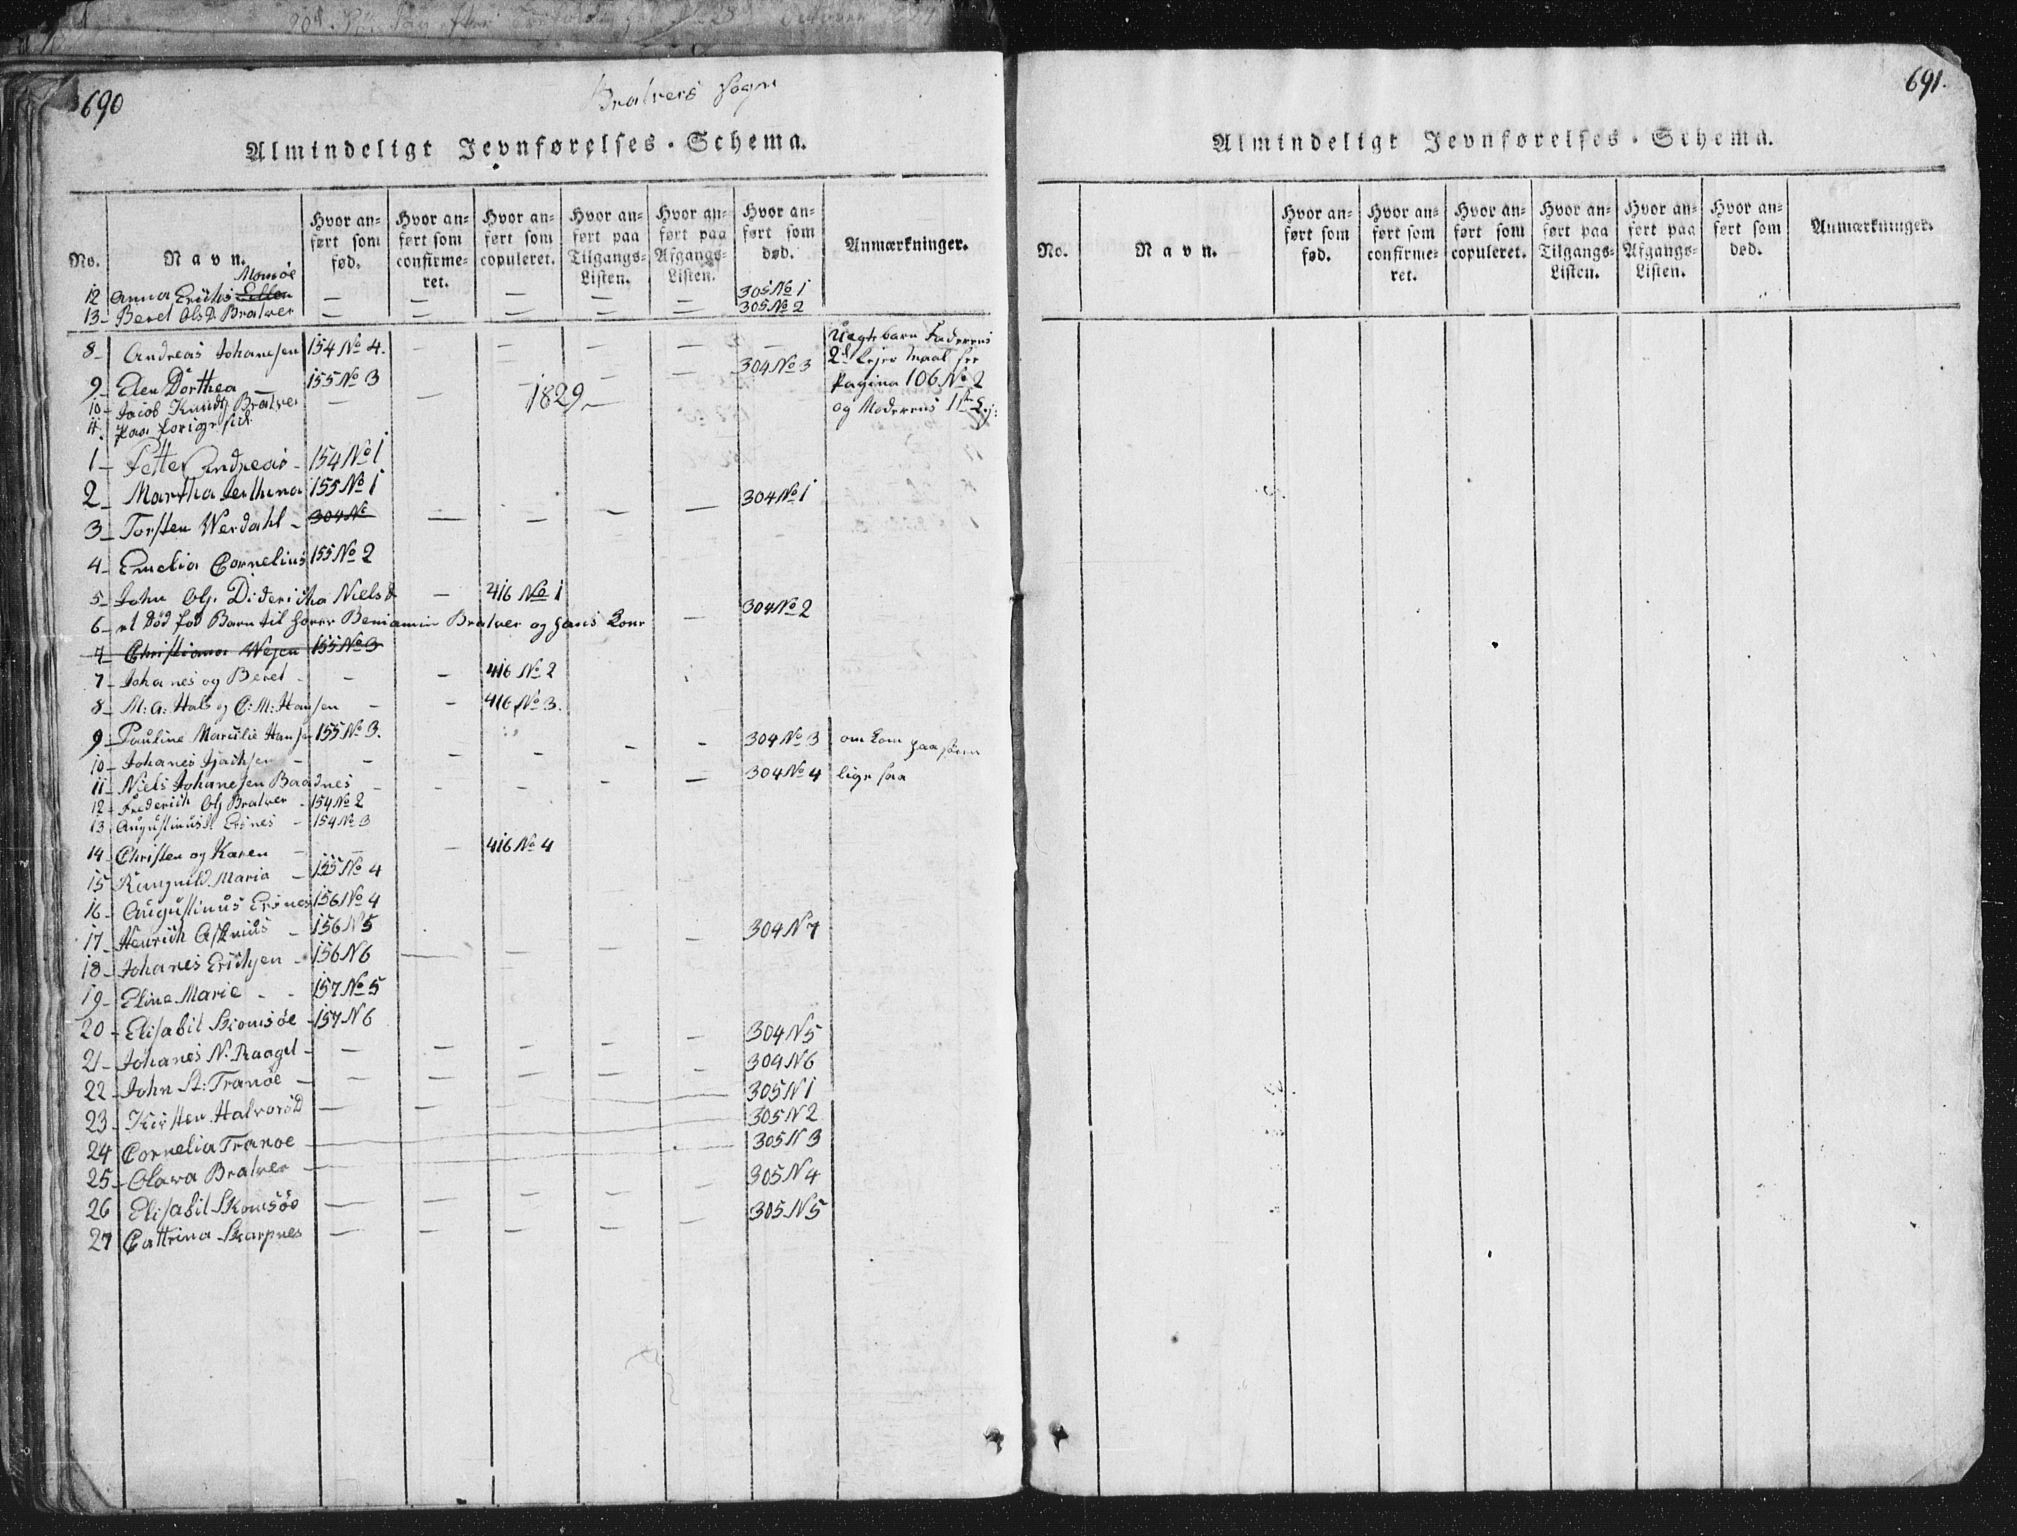 690
Bratvers Sogn
Almindeligt Jevnførelses-Schema.
No.
Navn.
Hvor anført som fød.
Hvor anført som confirmeret.
Hvor anført som copuleret.
Hvor anført paa Tilgangs-Listen.
Hvor anført paa Afgangs-Listen.
Hvor anført som død.
Anmærkninger.
12 Anna Erichs — — — — — 305 No 1
13 - Beret Ols D. Bratver — — — — — 305 No 2
8 - Andreas Johanesen 154 No 4. — — — — — Uegte barn Faderens
9 - Elen Dorthea 155 No 3 2d Lejer Maal see
10 - Jacob Knudtz Bratver — — — — — 304 No 3 Pagina 106 No 2
11. paa forige sid. og Moderens 1ste Lej:
1829 -
1 - Petter Andreas - 154 No 1
2 - Martha Jenthina 155 No 1
3 - Torsten Werdahl - 304 No — — — — 304 No 1
4 - Emelia Cornelius 155 No 2
5 - John Ols. Didericha Niels D — 416 No 1
6 - et død fød Barn til Herr Beniamin Bratver og hans Kone — 304 No 2
7 - Christiana Wejen 155 No 3
7 - Johanes og Beret - - - 416 No 2
8 - M: A: Hals og C: M: Hansen - - 416 No 3.
9 - Pauline Marülie Hansen 155 No 3.
10 - Johanes - - - - - - 304 No 3 om kom paa søen
11 - Niels Johanesen Baadnes - - - - - 304 No 4 lige saa
12 - Frederich Ols Bratver - 154 No 2
13 - Augustinus Ersnes - 154 No 3
14 - Christen og Karen - - - 416 No 4
15 Rangnild Maria - 155 No 4
16 - Augustinus Ersnes 156 No 4
17 - Henrich - 156 N 5
18 - Johanes Erichsen - 156 N 6 — — — — 304 N 7
19 - Eline Marie - - 157 No 5
20 - Elisabit Skomsøe - 157 N 6
21 - Johanes N. Raagel - — — — — — 304 N 5
22 - John St: Tranøe — — — — — — 304 N 6
23 - Kirsten Halvors D — — — 305 N 1
24 Cornelia Tranoe — 305 N 2
25 - Olava Bratver — 305 N 3
26 Elisabit Skomsøe — — — — — 305 N 4
27 Cattrina Skarpnes — — — — — 305 N 5
691.
Almindeligt Jevnførelses-Schema.
No.
Navn.
Hvor anført som fød.
Hvor anført som confirmeret.
Hvor anført som copuleret.
Hvor anført paa Tilgangs-Listen.
Hvor anført paa Afgangs-Listen.
Hvor anført som død.
Anmærkninger.